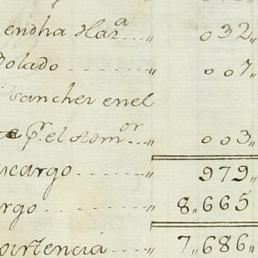 endha Har.ª ... „ 032„
olado ..... „ 007„
sanchez enel
pr. el Adm.or „ 003„
cargo ..... „ 979„
rgo ..... „ 8„665„
pertencia .... „ 7„686„